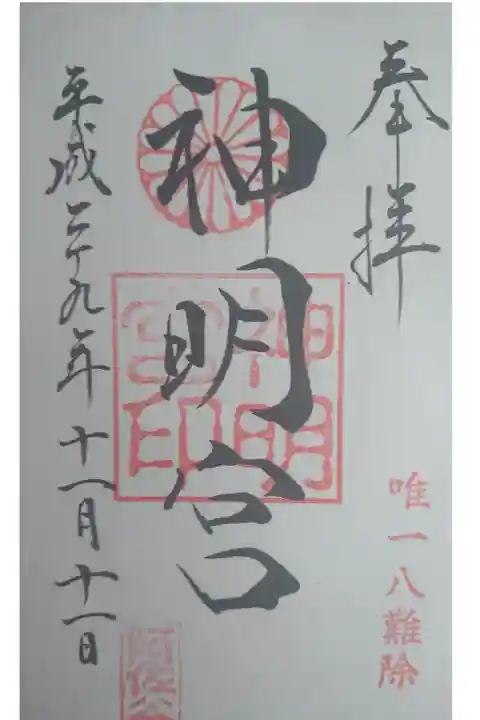 奉拝
唯一八難除
神明宮
神明宮印
平成二十九年十一月十一日
阿佐ヶ